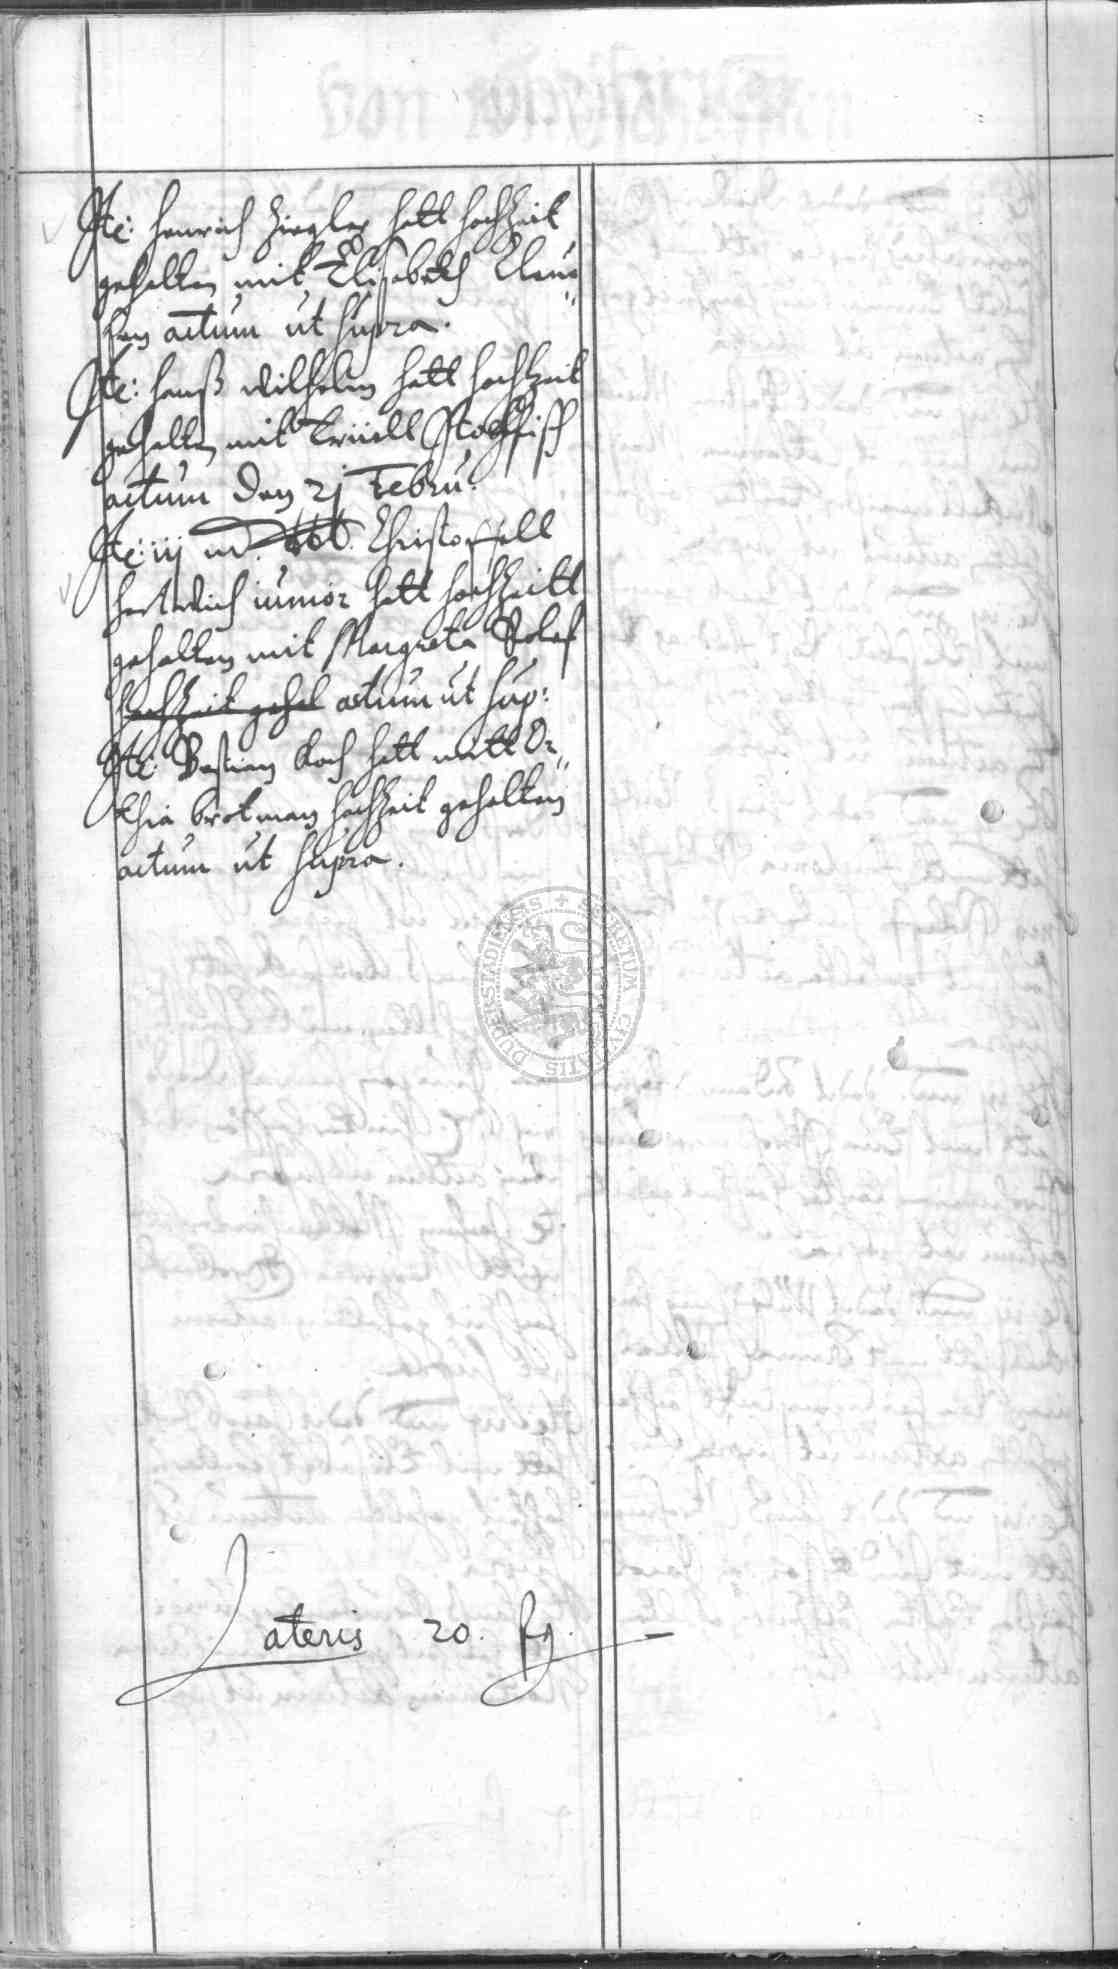 Ite: Henrich Ziegler hatt hochzeit
gehalten mit Elisabeth Clau„
sen actum ut supra.
Ite: Hanß Wilhelm hatt hochzeit
gehalten mit Stockfisch
actum den 2j Febru:
Ite: iij m Christoffell
Hertwich iunior hatt hochzeitt
gehalten mit Margreta
hochzeit gehal actum ut sup:
Ite: Bastian Koch hatt mitt Or„
thia brotman hochzeit gehalten
actum ut supra.
SIGILLUM CIVITATIS DUDERSTADIENSIS
Lateris 20. fl.